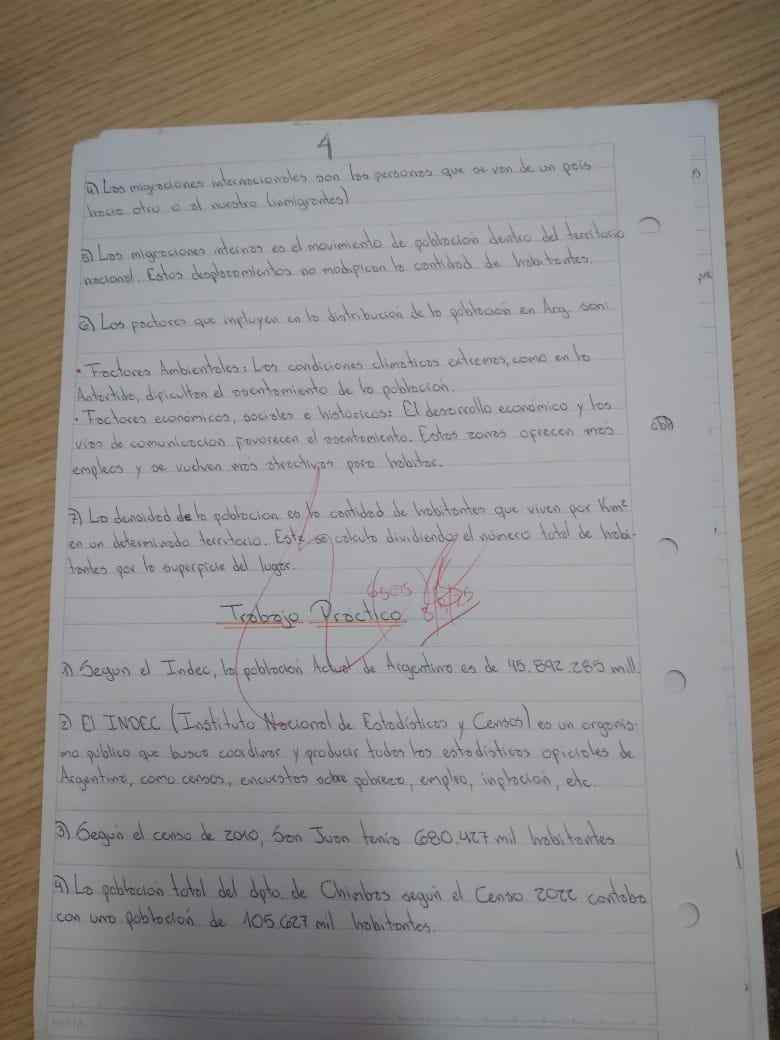 4
4) Las migraciones internacionales son las personas que se van de un país
hacia otro o al nuestro (inmigrantes)
5) Las migraciones internas es el movimiento de población dentro del territorio
nacional. Estos desplazamientos no modifican la cantidad de habitantes.
6) Los factores que influyen en la distribución de la población en Arg. son:
• Factores Ambientales: Las condiciones climáticas extremas, como en la
Antártida, dificultan el asentamiento de la población.
• Factores económicos, sociales e históricos: El desarrollo económico y las
vías de comunicación favorecen el asentamiento. Estas zonas ofrecen más
empleos y se vuelven más atractivas para habitar.
7) La densidad de la población es la cantidad de habitantes que viven por Km²
en un determinado territorio. Este se calcula dividiendo el número total de habi-
tantes por la superficie del lugar.
Trabajo Practico
1) Según el Indec, la población Actual de Argentina es de 45.892.285 mill.
2) El INDEC (Instituto Nacional de Estadísticas y Censos) es un organis-
mo público que busca coordinar y producir todas las estadísticas oficiales de
Argentina, como censos, encuestas sobre pobreza, empleo, inflación, etc.
3) Según el censo de 2010, San Juan tenía 680.427 mil habitantes
4) La población total del dpto. de Chimbas según el Censo 2022 contaba
con una población de 105.627 mil habitantes.